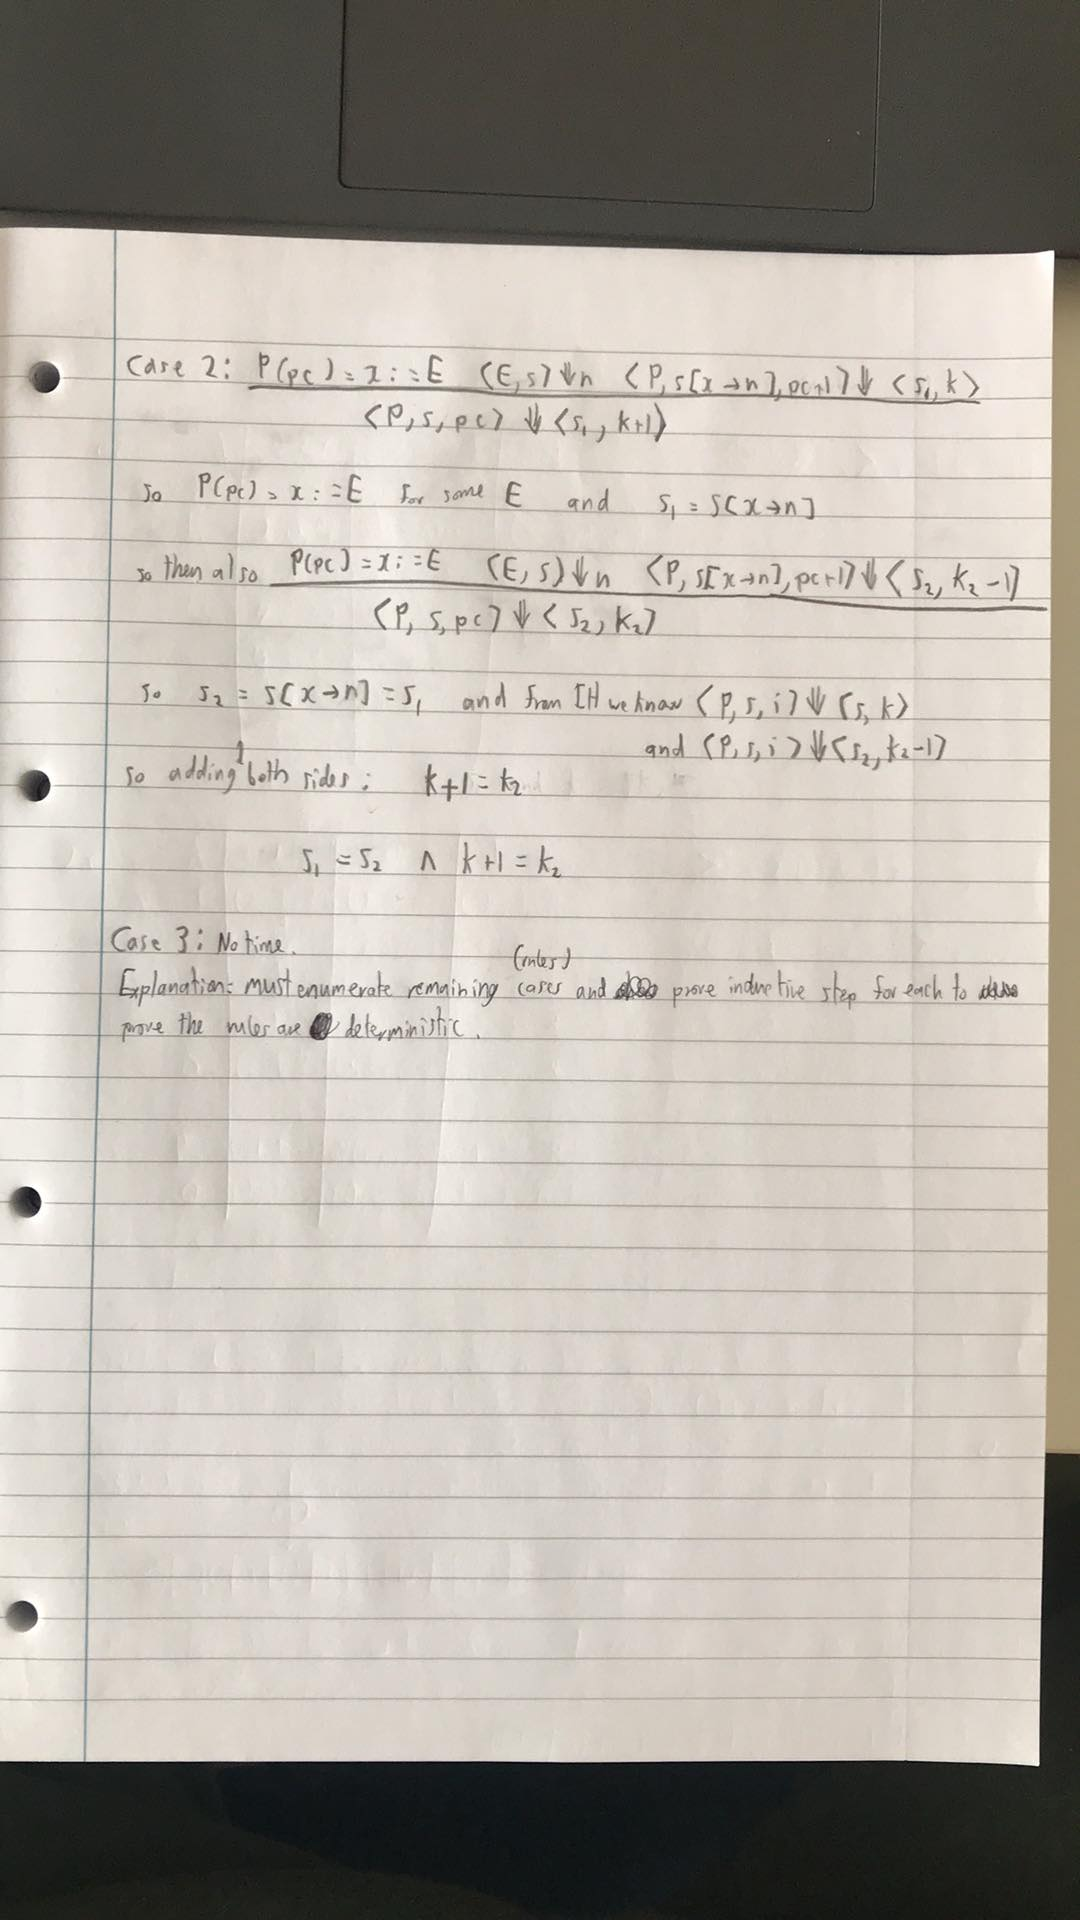 Case 2: P(pc) = x := E ⟨E, s⟩ ⇓ n ⟨P, s[x→n], pc+1⟩ ⇓ ⟨s₁, k⟩
⟨P, s, pc⟩ ⇓ ⟨s₁, k+1⟩
So P(pc) = x := E for some E and s₁ = s[x→n]
so then also P(pc) = x := E ⟨E, s⟩ ⇓ n ⟨P, s[x→n], pc+1⟩ ⇓ ⟨s₂, k₂-1⟩
⟨P, s, pc⟩ ⇓ ⟨s₂, k₂⟩
so s₂ = s[x→n] = s₁ and from IH we know ⟨P, s, i⟩ ⇓ ⟨s, k⟩
and ⟨P, s, i⟩ ⇓ ⟨s₂, k₂-1⟩
so adding 1 both sides: k+1 = k₂
s₁ = s₂ ∧ k+1 = k₂
Case 3: No time.
(rules)
Explanation: must enumerate remaining cases and prove inductive step for each to
prove the rules are deterministic.